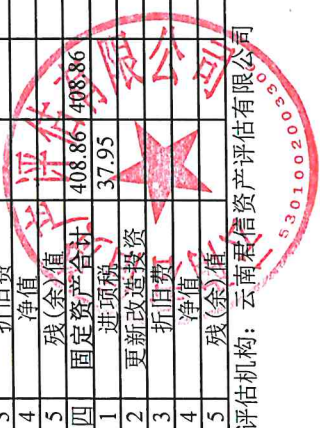 3 折旧费
4 净值
5 残(余)值
四 固定资产合计 408.86 408.86
1 进项税 37.95
2 更新改造投资
3 折旧费
4 净值
5 残(余)值
评估机构：云南君信资产评估有限公司
产评估有限公司
530100200330